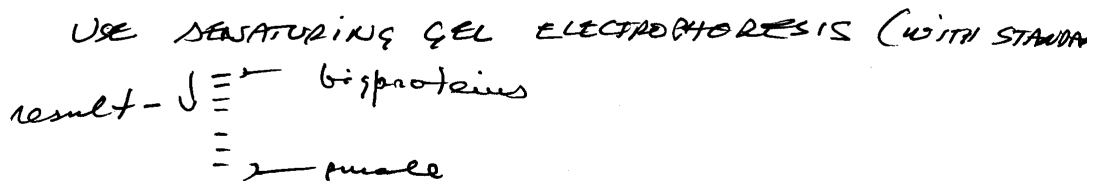 USE DENATURING GEL ELECTROPHORESIS (WITH STANDA
big proteins
result -
small